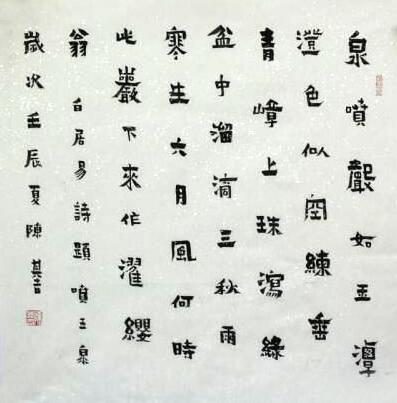 泉噴聲如玉潭
澄色似空練垂
青嶂上珠瀉綠
盆中溜滴三秋雨
寒生六月風何時
此巖下來作濯纓
翁 白居易詩題噴玉泉
歲次壬辰夏陳